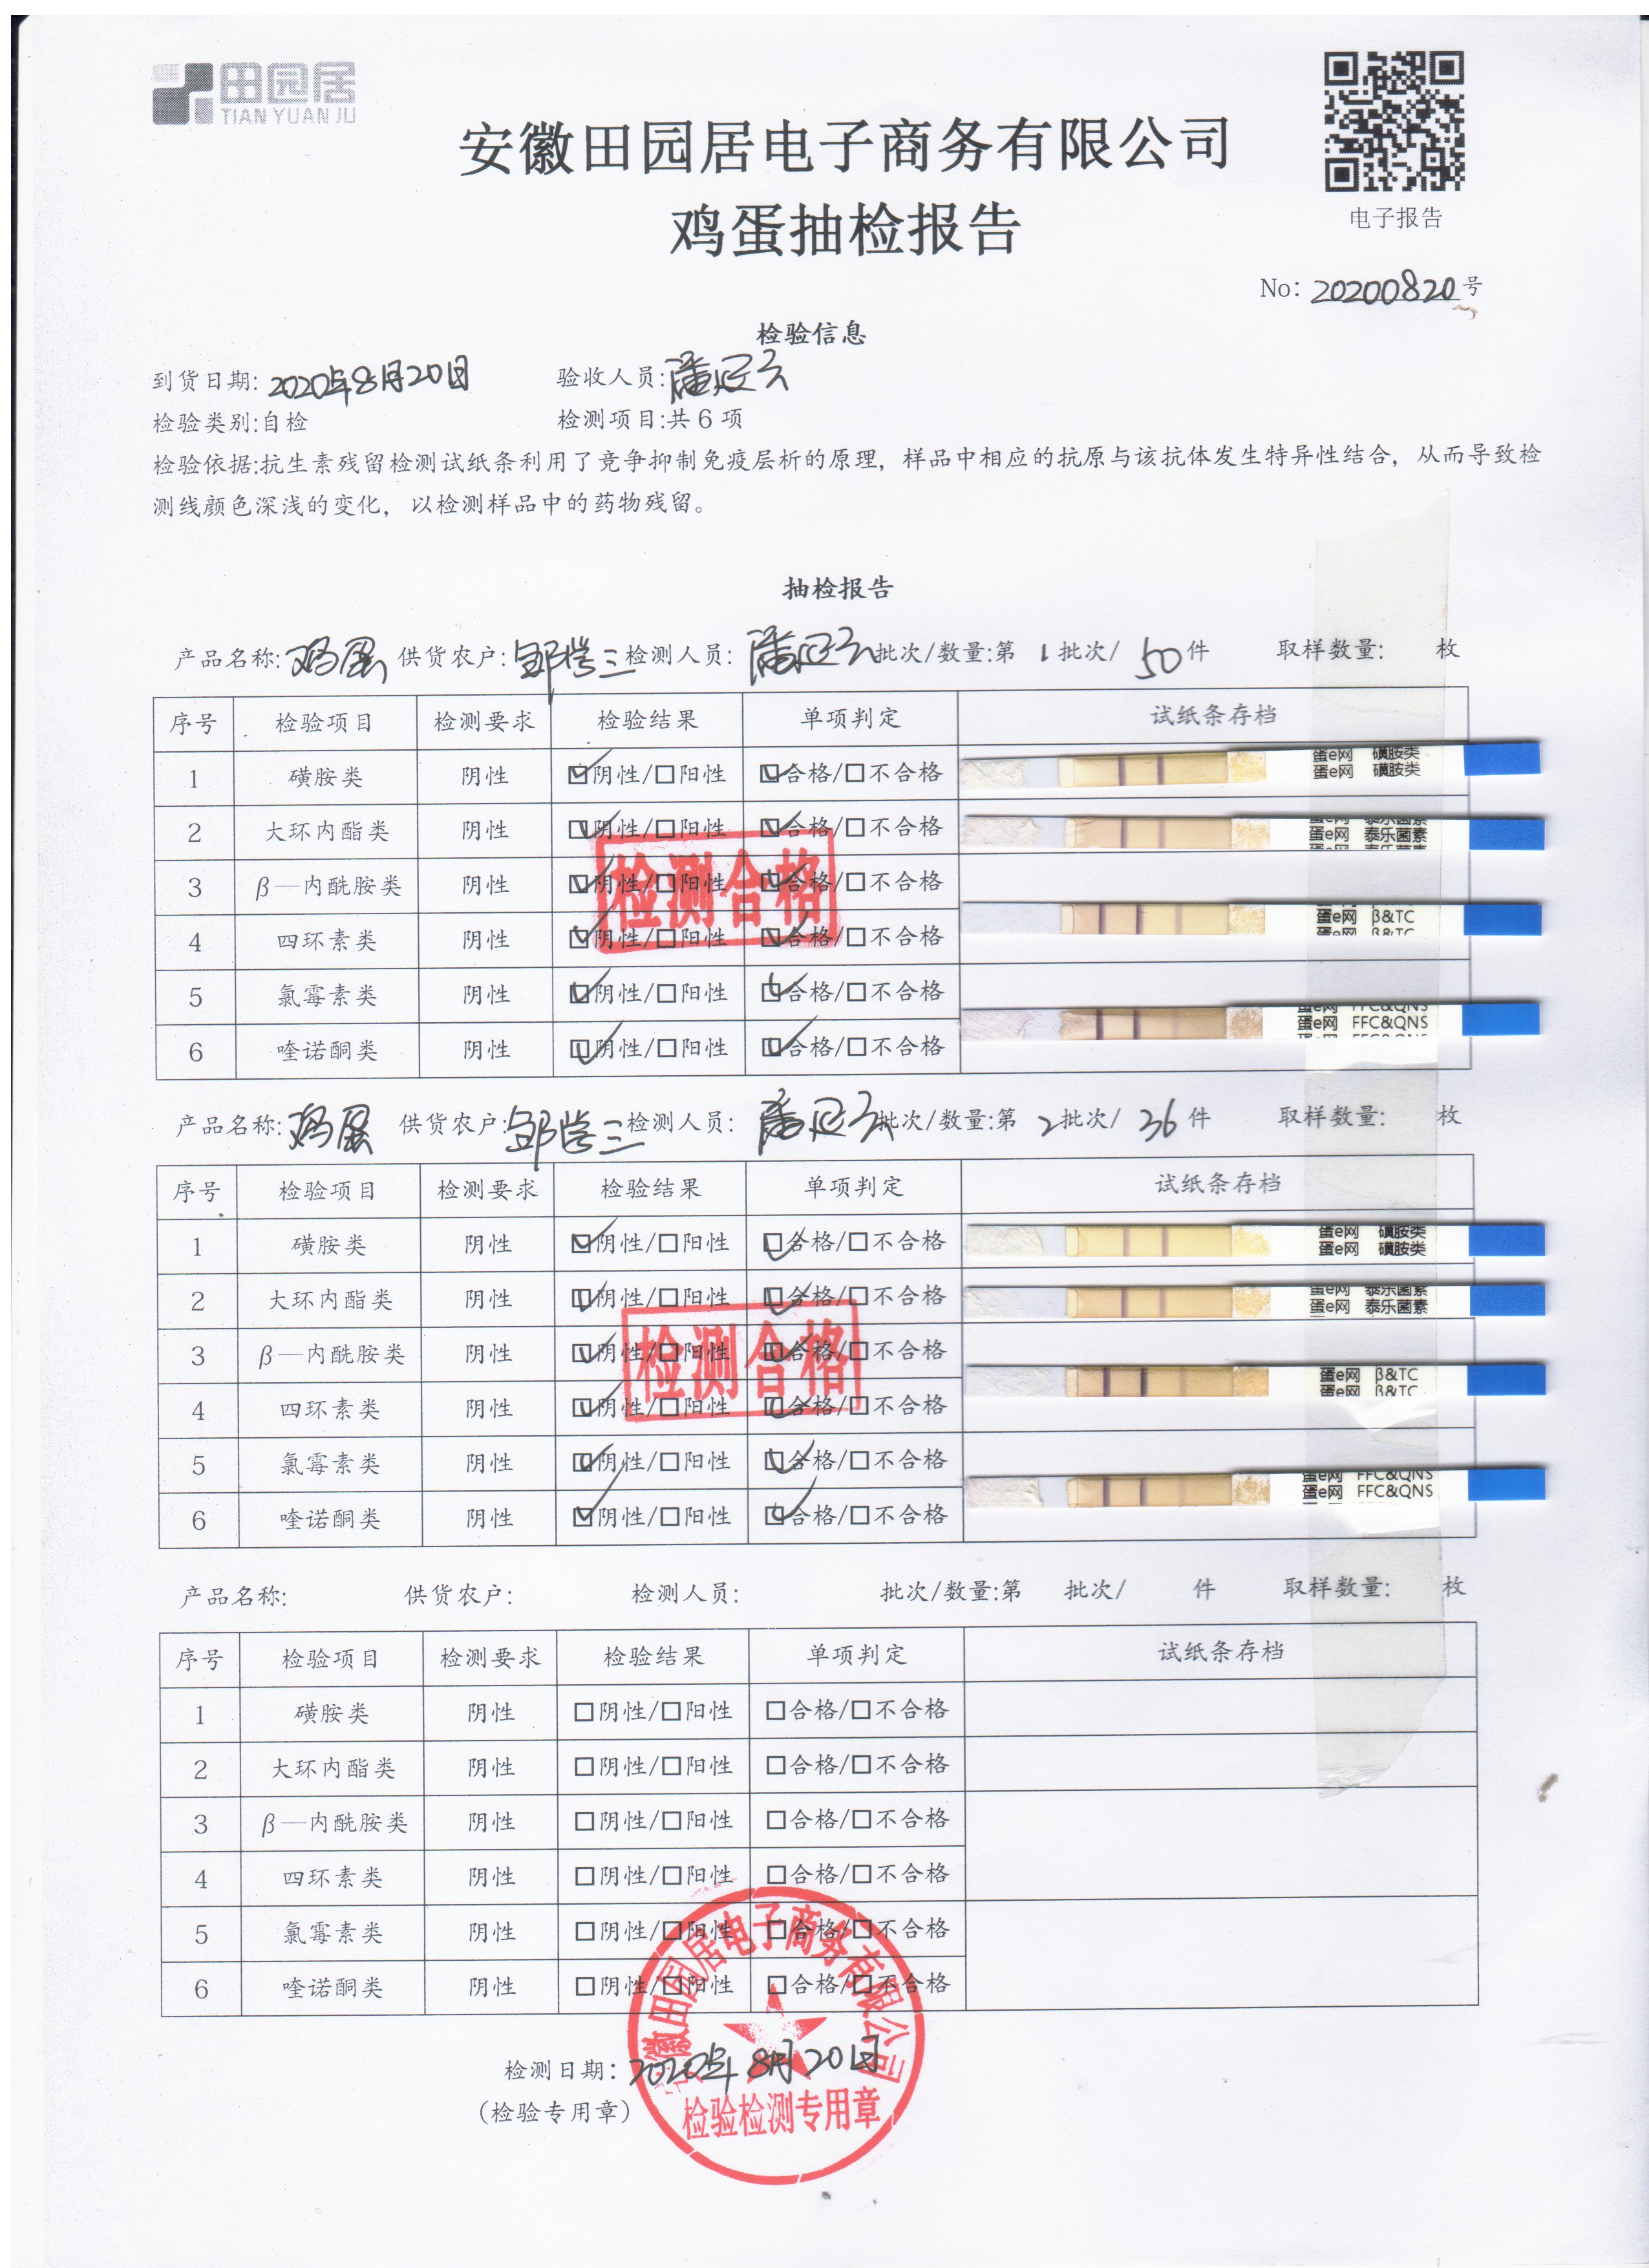 田园居
TIAN YUAN JU
安徽田园居电子商务有限公司
鸡蛋抽检报告
电子报告
No: 20200820号
检验信息
到货日期: 2020年8月20日 验收人员:潘
检验类别:自检 检测项目:共6项
检验依据:抗生素残留检测试纸条利用了竞争抑制免疫层析的原理，样品中相应的抗原与该抗体发生特异性结合，从而导致检
测线颜色深浅的变化，以检测样品中的药物残留。
抽检报告
产品名称: 鸡蛋 供货农户: 检测人员: 潘 批次/数量:第 1 批次/ 50 件 取样数量: 枚
序号 检验项目 检测要求 检验结果 单项判定 试纸条存档
1 磺胺类 阴性 ☑阴性/□阳性 ☑合格/□不合格 蛋e网 磺胺类
蛋e网 磺胺类
2 大环内酯类 阴性 ☑阴性/□阳性 ☑合格/□不合格 蛋e网 泰乐菌素
3 β—内酰胺类 阴性 ☑阴性/□阳性 ☑合格/□不合格
4 四环素类 阴性 ☑阴性/□阳性 ☑合格/□不合格 蛋e网 β&TC
蛋e网 β&TC
检测合格
5 氯霉素类 阴性 ☑阴性/□阳性 ☑合格/□不合格 蛋e网 FFC&QNS
蛋e网 FFC&QNS
6 喹诺酮类 阴性 ☑阴性/□阳性 ☑合格/□不合格
产品名称: 鸡蛋 供货农户: 检测人员: 潘 批次/数量:第 2 批次/ 36 件 取样数量: 枚
序号 检验项目 检测要求 检验结果 单项判定 试纸条存档
1 磺胺类 阴性 ☑阴性/□阳性 ☑合格/□不合格 蛋e网 磺胺类
蛋e网 磺胺类
2 大环内酯类 阴性 ☑阴性/□阳性 ☑合格/□不合格 蛋e网 泰乐菌素
蛋e网 泰乐菌素
3 β—内酰胺类 阴性 ☑阴性/□阳性 ☑合格/□不合格 蛋e网 β&TC
蛋e网 β&TC
4 四环素类 阴性 ☑阴性/□阳性 ☑合格/□不合格
检测合格
5 氯霉素类 阴性 ☑阴性/□阳性 ☑合格/□不合格 蛋e网 FFC&QNS
蛋e网 FFC&QNS
6 喹诺酮类 阴性 ☑阴性/□阳性 ☑合格/□不合格
产品名称: 供货农户: 检测人员: 批次/数量:第 批次/ 件 取样数量: 枚
序号 检验项目 检测要求 检验结果 单项判定 试纸条存档
1 磺胺类 阴性 □阴性/□阳性 □合格/□不合格
2 大环内酯类 阴性 □阴性/□阳性 □合格/□不合格
3 β—内酰胺类 阴性 □阴性/□阳性 □合格/□不合格
4 四环素类 阴性 □阴性/□阳性 □合格/□不合格
5 氯霉素类 阴性 □阴性/□阳性 □合格/□不合格
6 喹诺酮类 阴性 □阴性/□阳性 □合格/□不合格
安徽田园居电子商务有限公司
检测日期: 2020年8月20日
(检验专用章)
检验检测专用章